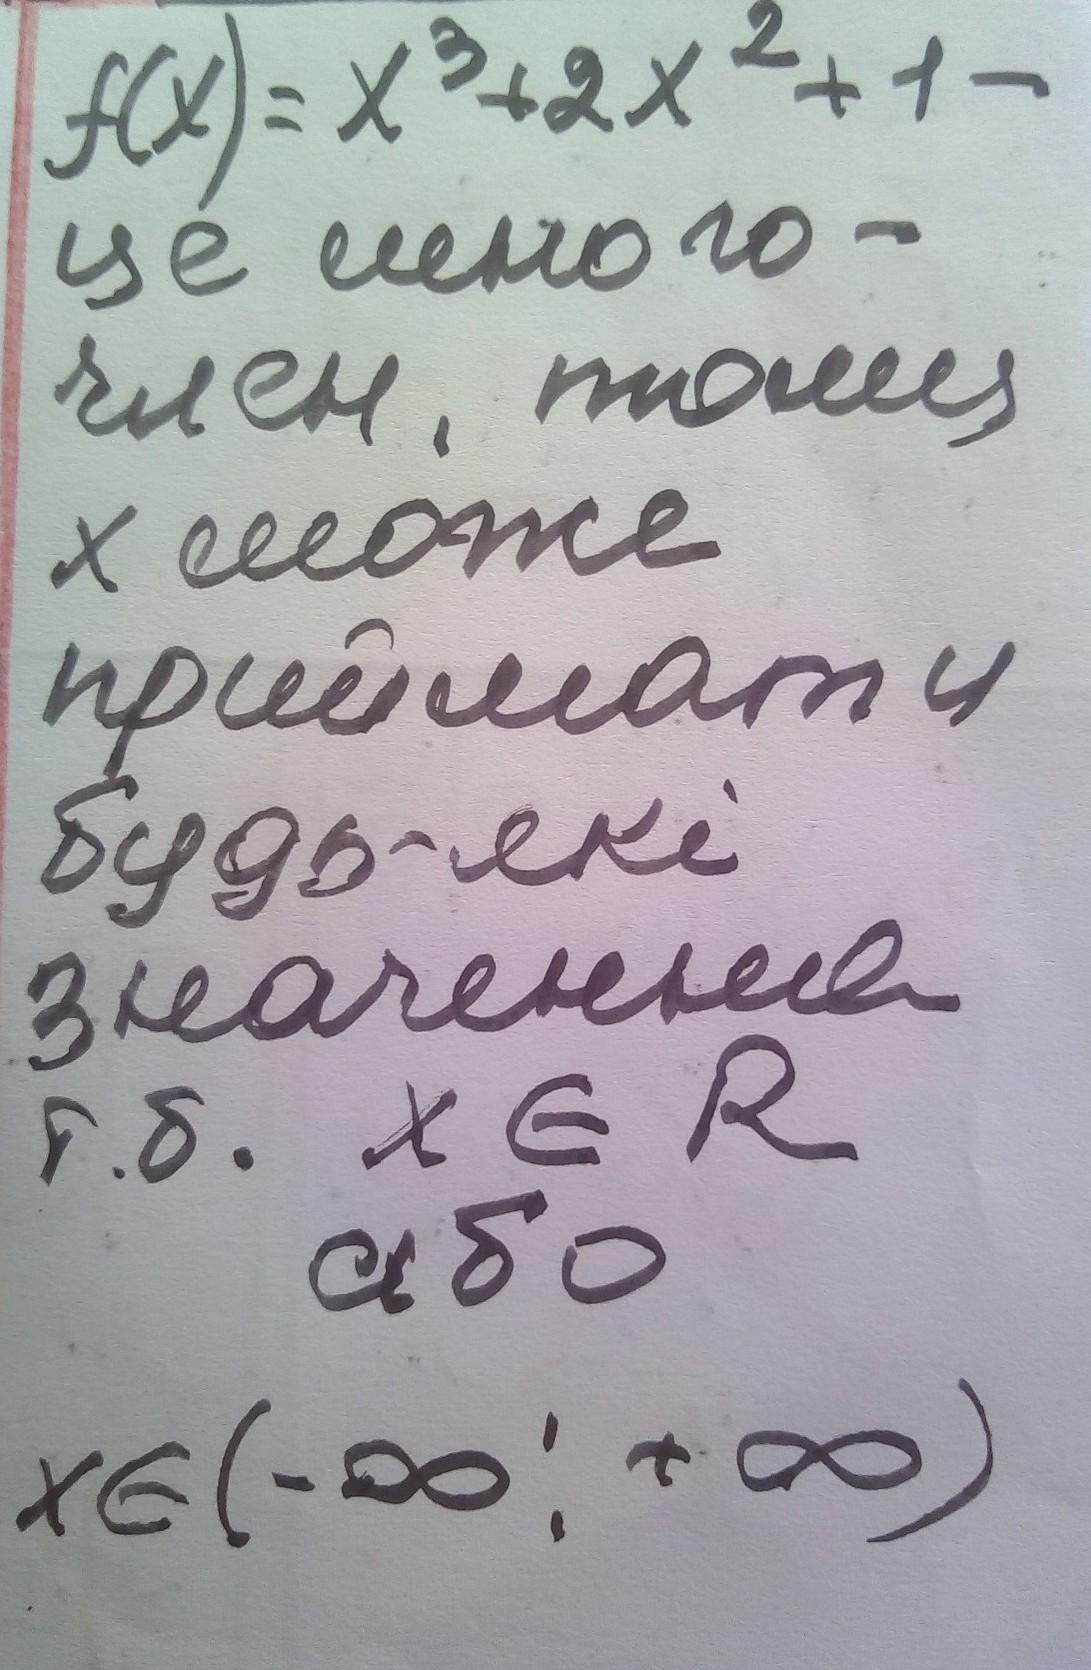 f(x) = x³+2x²+1 -
це много-
член, тому
x може
приймати
будь-які
значення
т.б. x ∈ R
або
x∈(-∞; +∞)